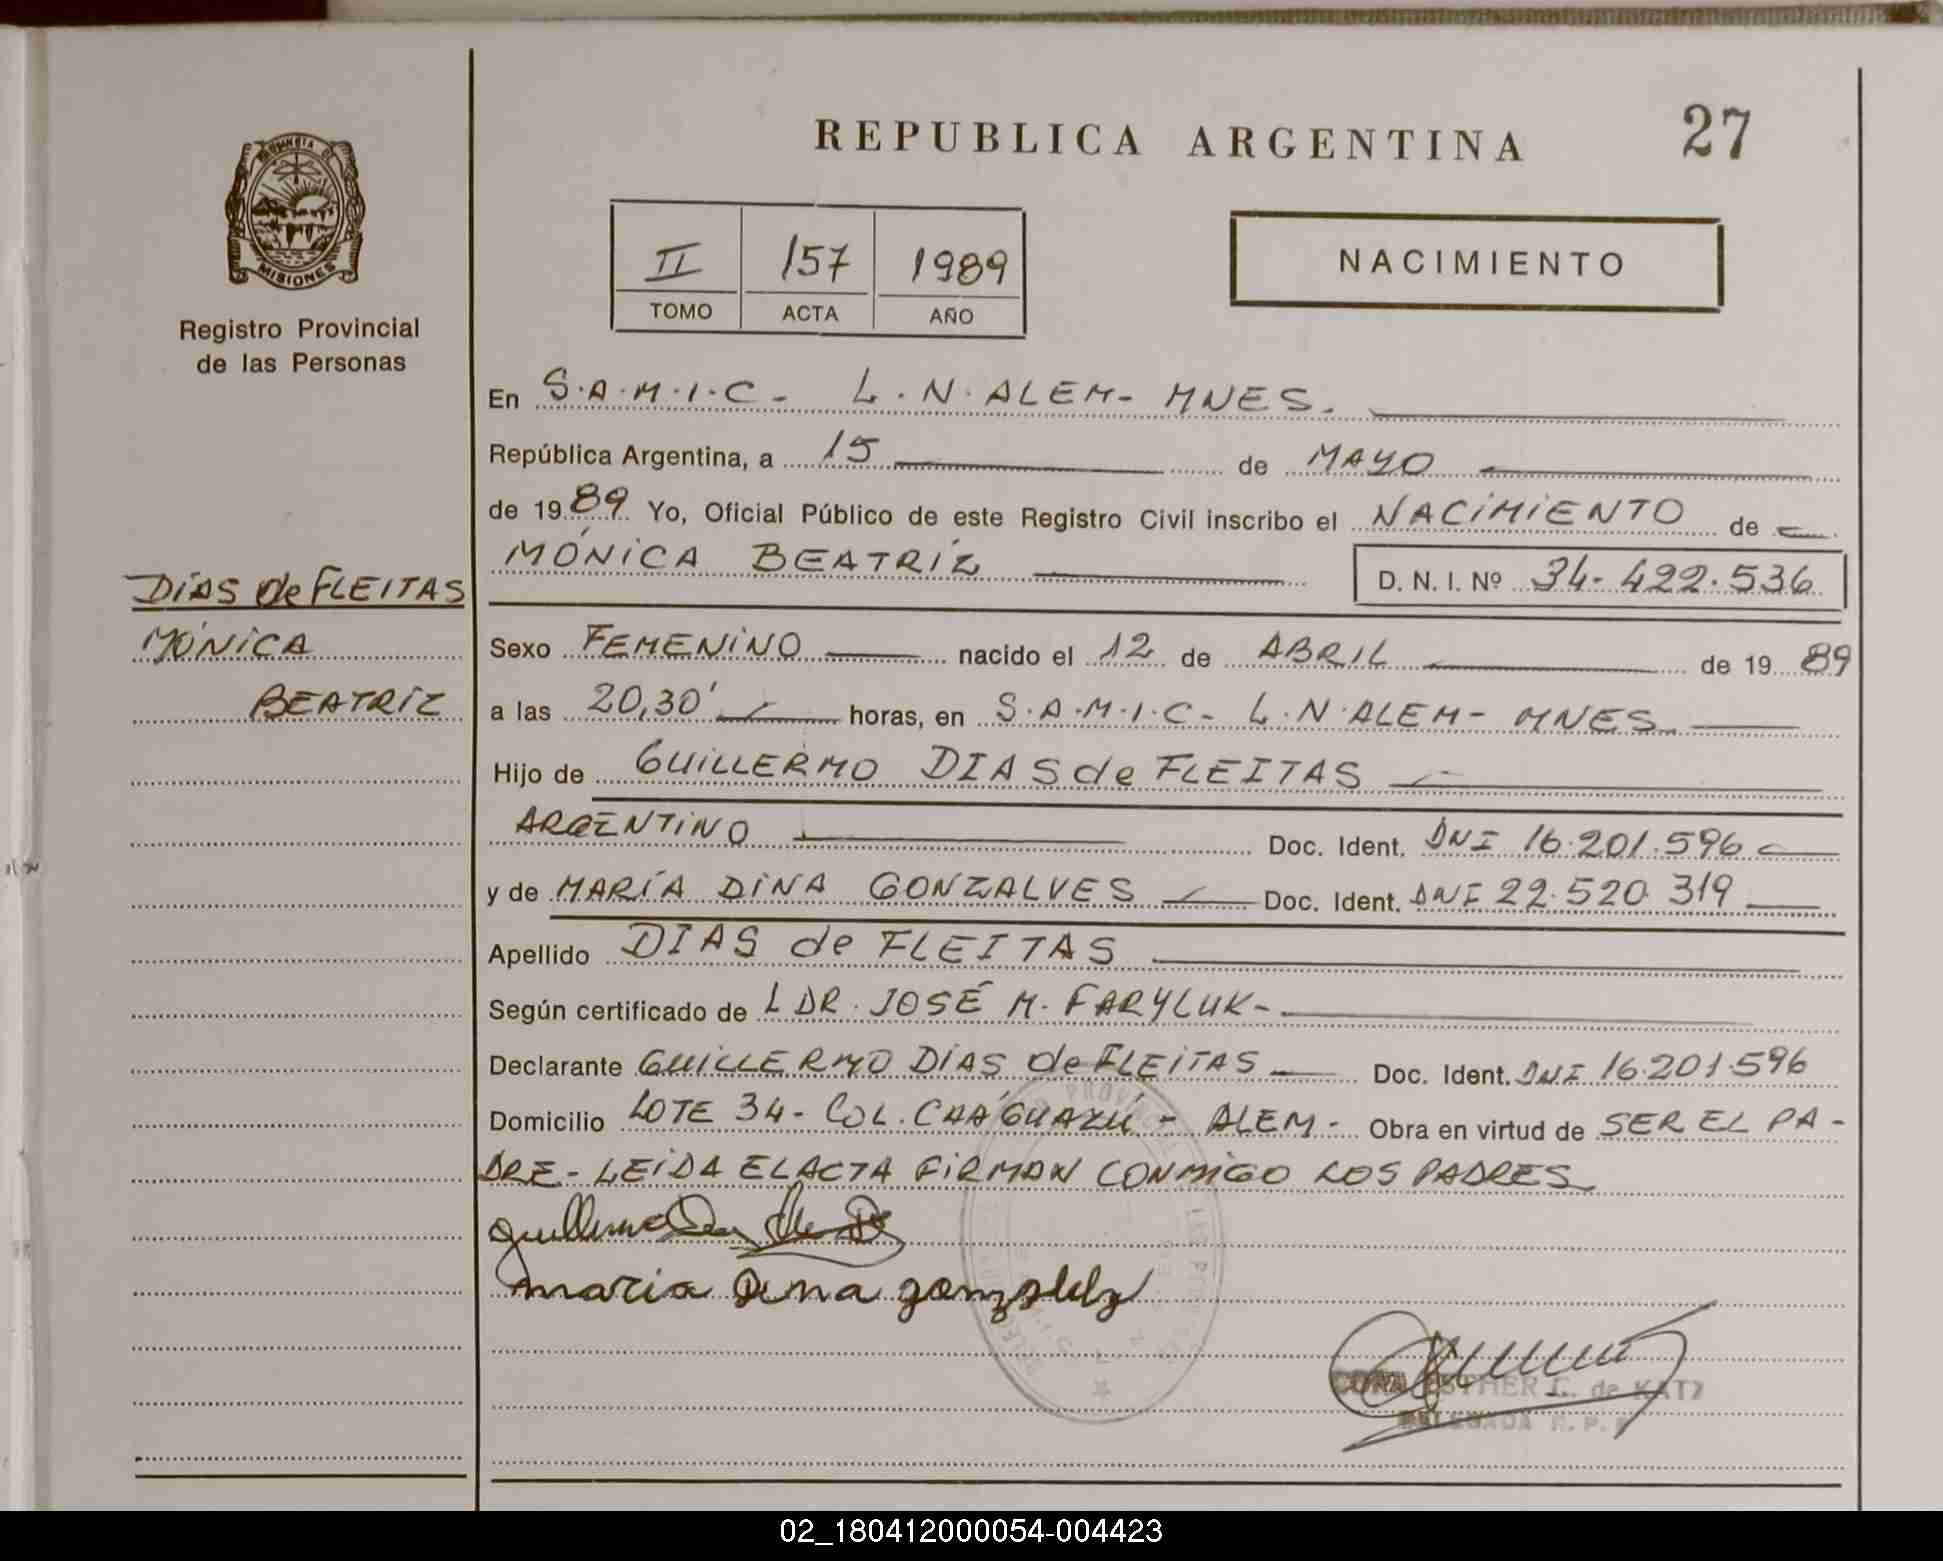 REPUBLICA ARGENTINA
27
PROVINCIA DE
MISIONES
Registro Provincial
de las Personas
II 157 1989
TOMO ACTA AÑO
NACIMIENTO
DIAS de FLEITAS
MÓNICA
BEATRIZ
En S.A.M.I.C- L.N.ALEM- MNES.
República Argentina, a 15 de MAYO
de 1989 Yo, Oficial Público de este Registro Civil inscribo el NACIMIENTO de
MÓNICA BEATRIZ D. N. I. Nº 34.422.536
Sexo FEMENINO nacido el 12 de ABRIL de 1989
a las 20,30' horas, en S.A.M.I.C- L.N.ALEM- MNES
Hijo de GUILLERMO DIAS de FLEITAS
ARGENTINO Doc. Ident. DNI 16.201.596
y de MARÍA DINA GONZALVES Doc. Ident. DNI 22.520.319
Apellido DIAS de FLEITAS
Según certificado de L DR. JOSÉ M. FARYLUK-
Declarante GUILLERMO DIAS de FLEITAS Doc. Ident. DNI 16.201.596
Domicilio LOTE 34- COL. CAA GUAZÚ - ALEM- Obra en virtud de SER EL PA-
DRE- LEIDA EL ACTA FIRMAN CONMIGO LOS PADRES
maria Dina
ESTHER C. de KATZ
DELEGADA R. P.
02_180412000054-004423